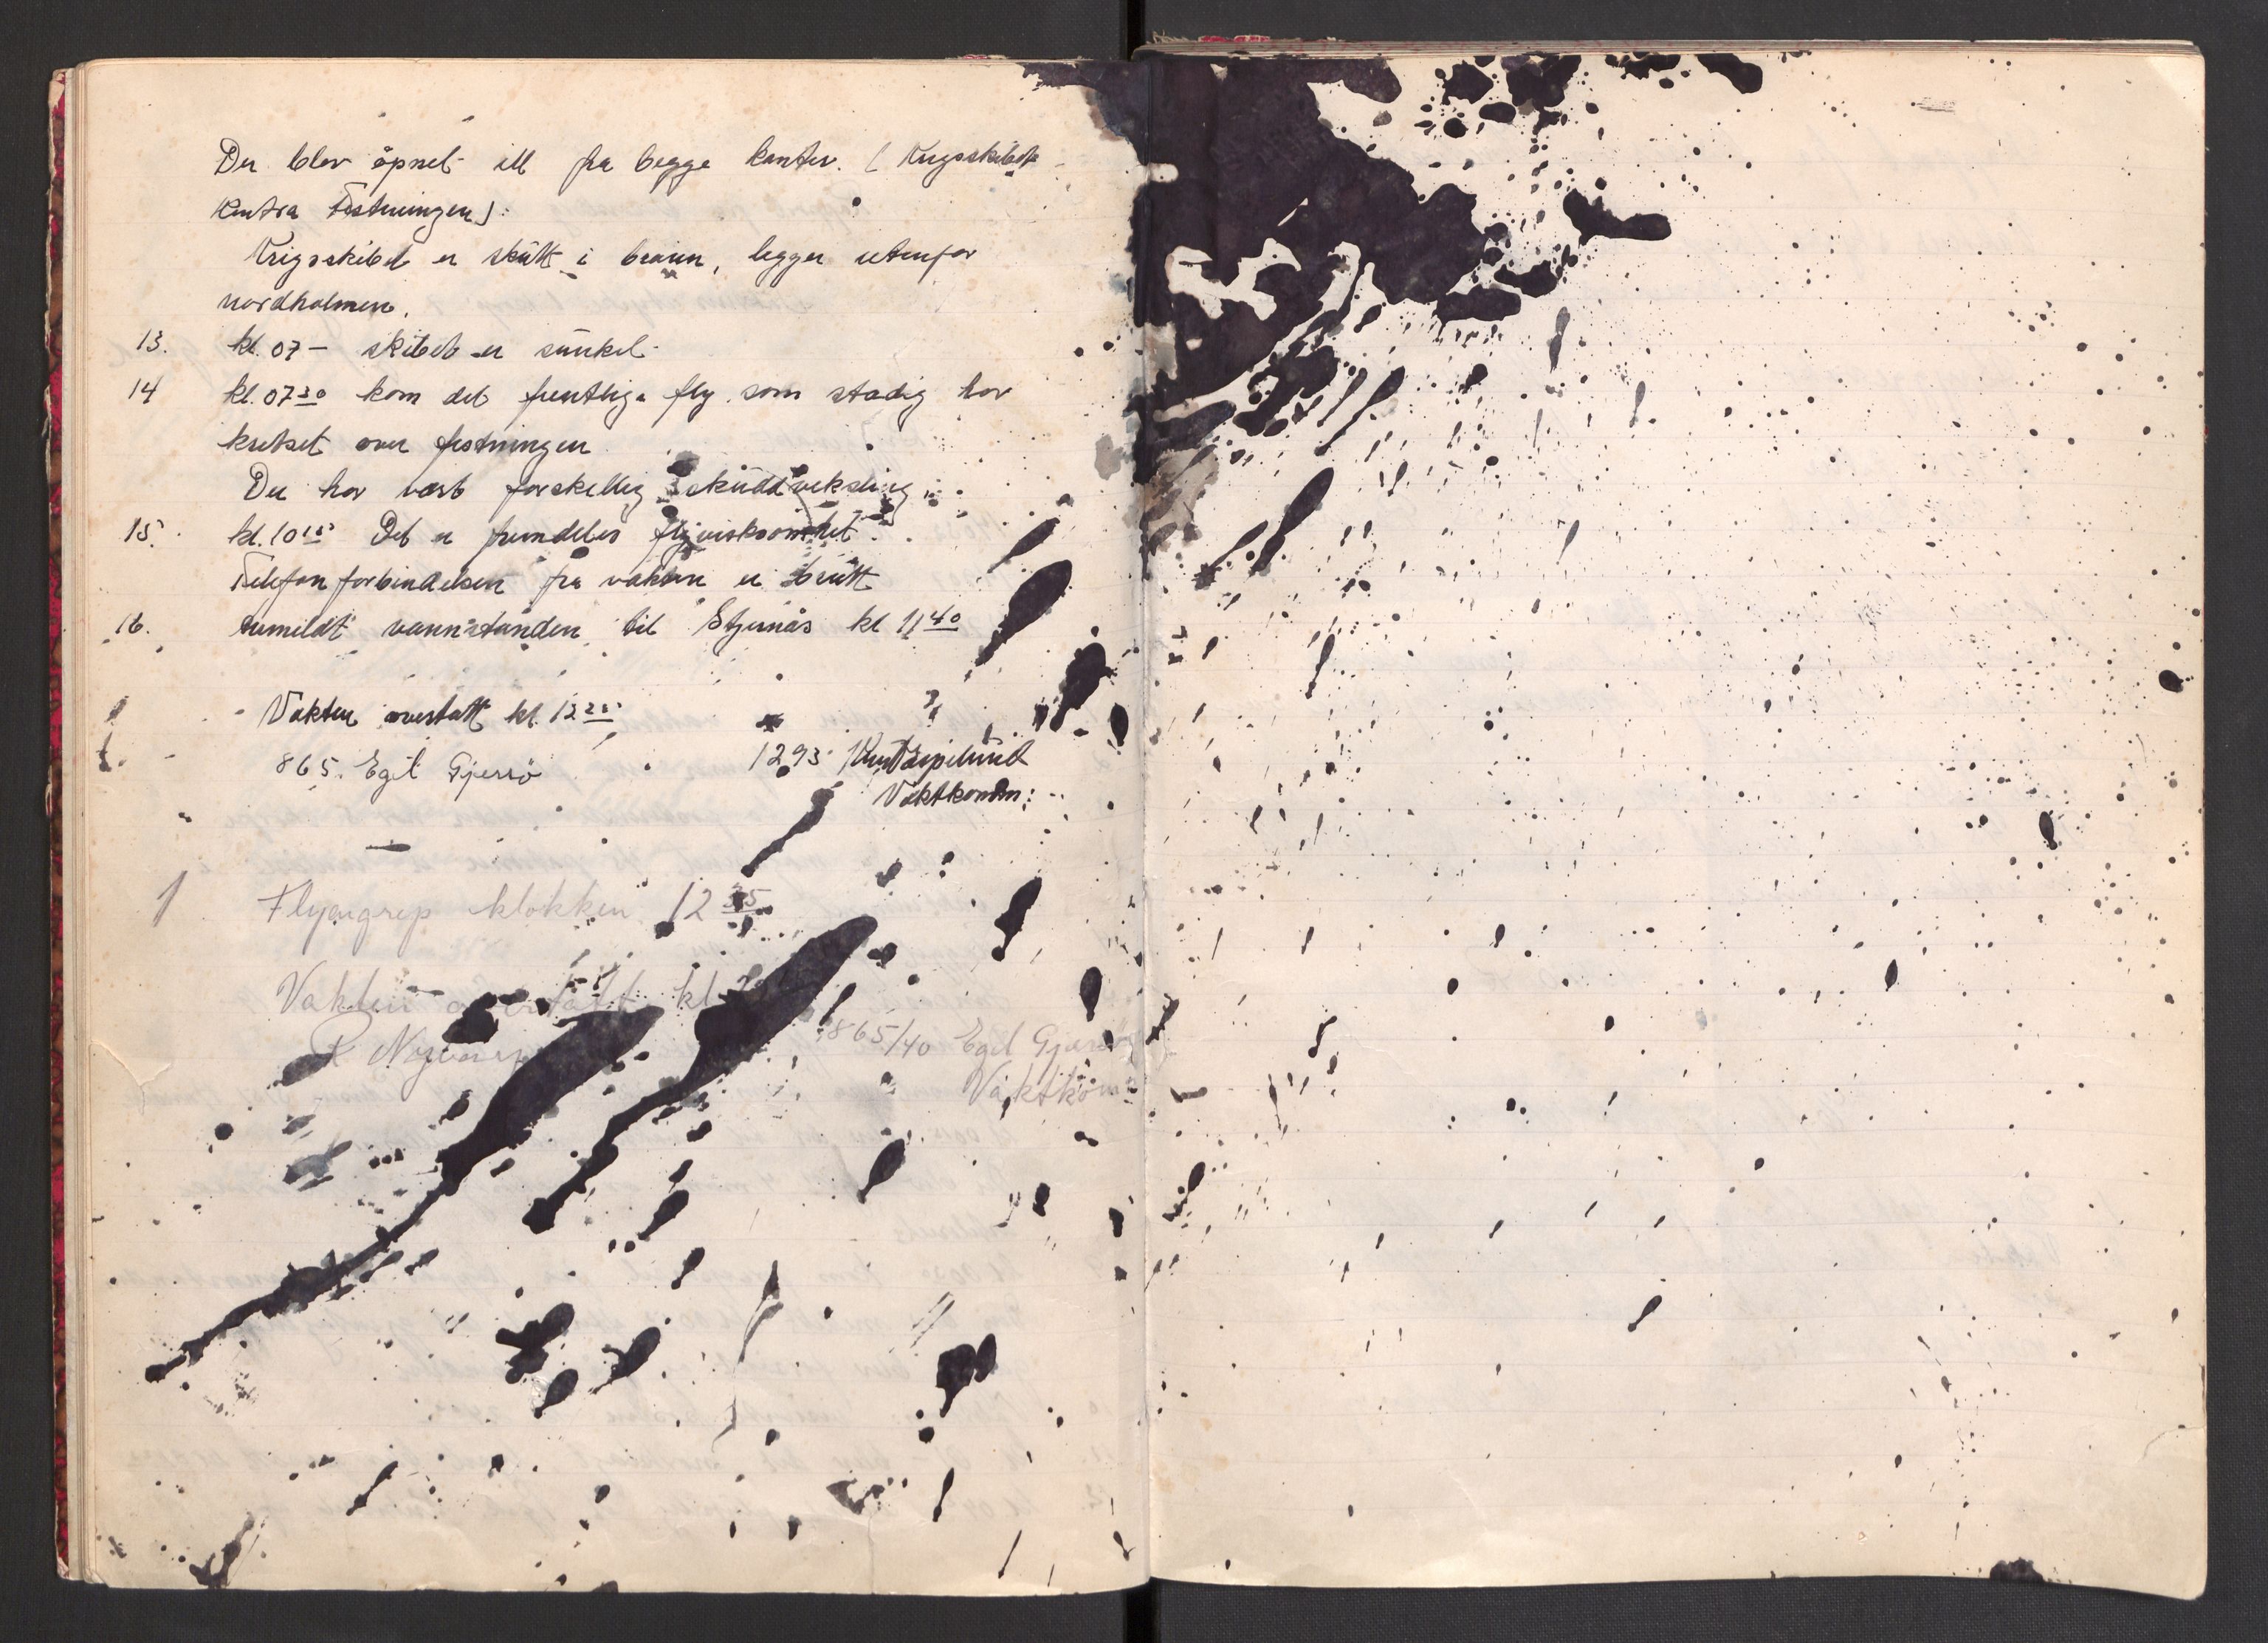 Der blev åpnet ill fra begge kanter. ( Krigsskibet
kontra Festningen).
Krigsskibet er skutt i brann, legger utenfor
nordholmen.
13. kl. 07 – skibet er sunket.
14 kl. 0730 kom det fientlige fly som stadig har
kretset over festningen
Der har vært forskellig skuddveksling
15. kl. 1015 Det er fremdeles flyvirksomhet.
Telefonforbindelsen fra vakten er brutt
16. anmeldt vannstanden til Stjernås kl 1140
Vakten overtatt kl. 1225
865. Egil Gjersø 1293 Knut
Vaktkomm:
1 Flyangrep klokken 1235
Vakten overtatt kl
R 865/40 Egil Gjersø
Vaktkom